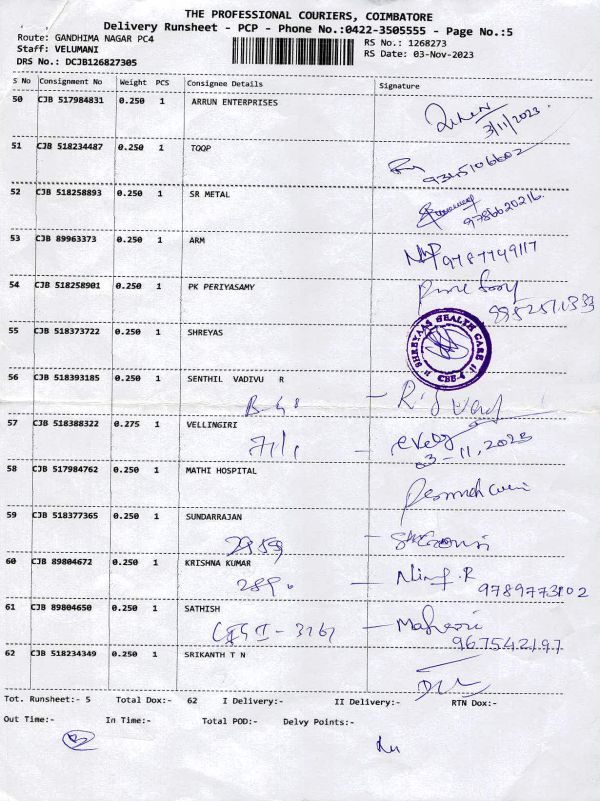 THE PROFESSIONAL COURIERS, COIMBATORE
Delivery Runsheet - PCP - Phone No.:0422-3505555 - Page No.:5
Route: GANDHIMA NAGAR PC4
RS No.: 1268273
Staff: VELUMANI
RS Date: 03-Nov-2023
DRS No.: DCJB126827305
S No Consignment No Weight PCS Consignee Details Signature
50 CJB 517984831 0.250 1 ARRUN ENTERPRISES
3/11/2023
51 CJB 518234487 0.250 1 TOOP
9345106602
52 CJB 518258893 0.250 1 SR METAL
9786620216
53 CJB 89963373 0.250 1 ARM
9787749117
54 CJB 518258901 0.250 1 PK PERIYASAMY
55 CJB 518373722 0.250 1 SHREYAS
SHREYAAS HEALTH CARE
CBE-4
56 CJB 518393185 0.250 1 SENTHIL VADIVU R
57 CJB 518388322 0.275 1 VELLINGIRI
03-11,2023
58 CJB 517984762 0.250 1 MATHI HOSPITAL
59 CJB 518377365 0.250 1 SUNDARRAJAN
60 CJB 89804672 0.250 1 KRISHNA KUMAR
9789773102
61 CJB 89804650 0.250 1 SATHISH
967542197
62 CJB 518234349 0.250 1 SRIKANTH T N
Tot. Runsheet:- 5 Total Dox:- 62 I Delivery:- II Delivery:- RTN Dox:-
Out Time:- In Time:- Total POD:- Delvy Points:-